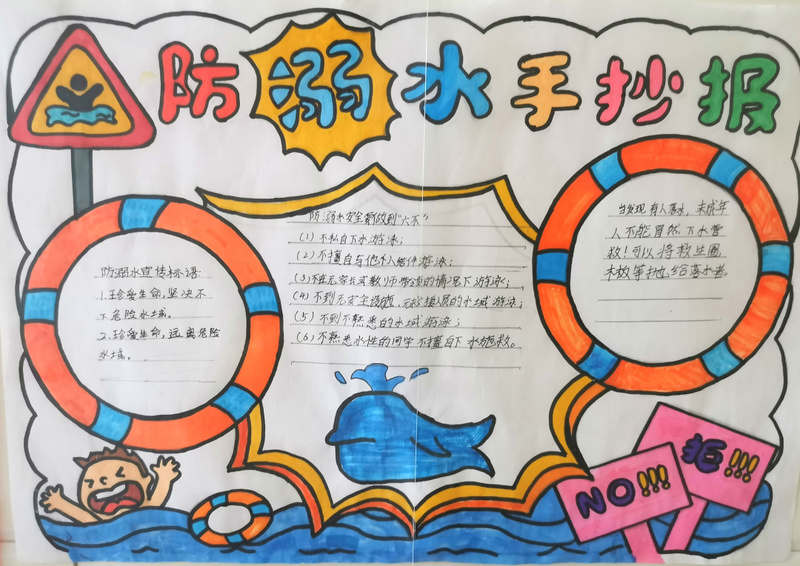 防溺水手抄报
防溺水宣传标语
1.珍爱生命,坚决不
下危险水域。
2.珍爱生命,远离危险
水域。
防溺水安全要做到"六不"
(1)不私自下水游泳;
(2)不擅自与他人结伴游泳;
(3)不在无家长或教师带领的情况下游泳;
(4)不到无安全设施、无救援人员的水域游泳;
(5)不到不熟悉的水域游泳;
(6)不熟悉水性的同学不擅自下水施救。
当发现有人落水,未成年
人不能冒然下水营
救!可以将救生圈
木板等抛给落水者
NO!!!
拒!!!